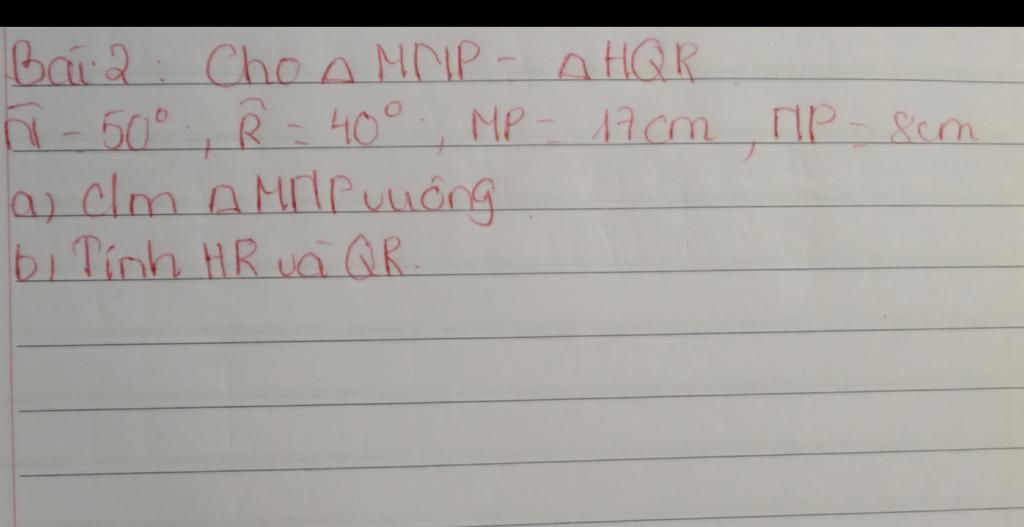 Bài 2: Cho Δ MNP = Δ HQR
N̂ = 50°; , R̂ = 40°; , MP = 17cm , NP = 8cm
a) c/m Δ MNP vuông
b) Tính HR và QR.